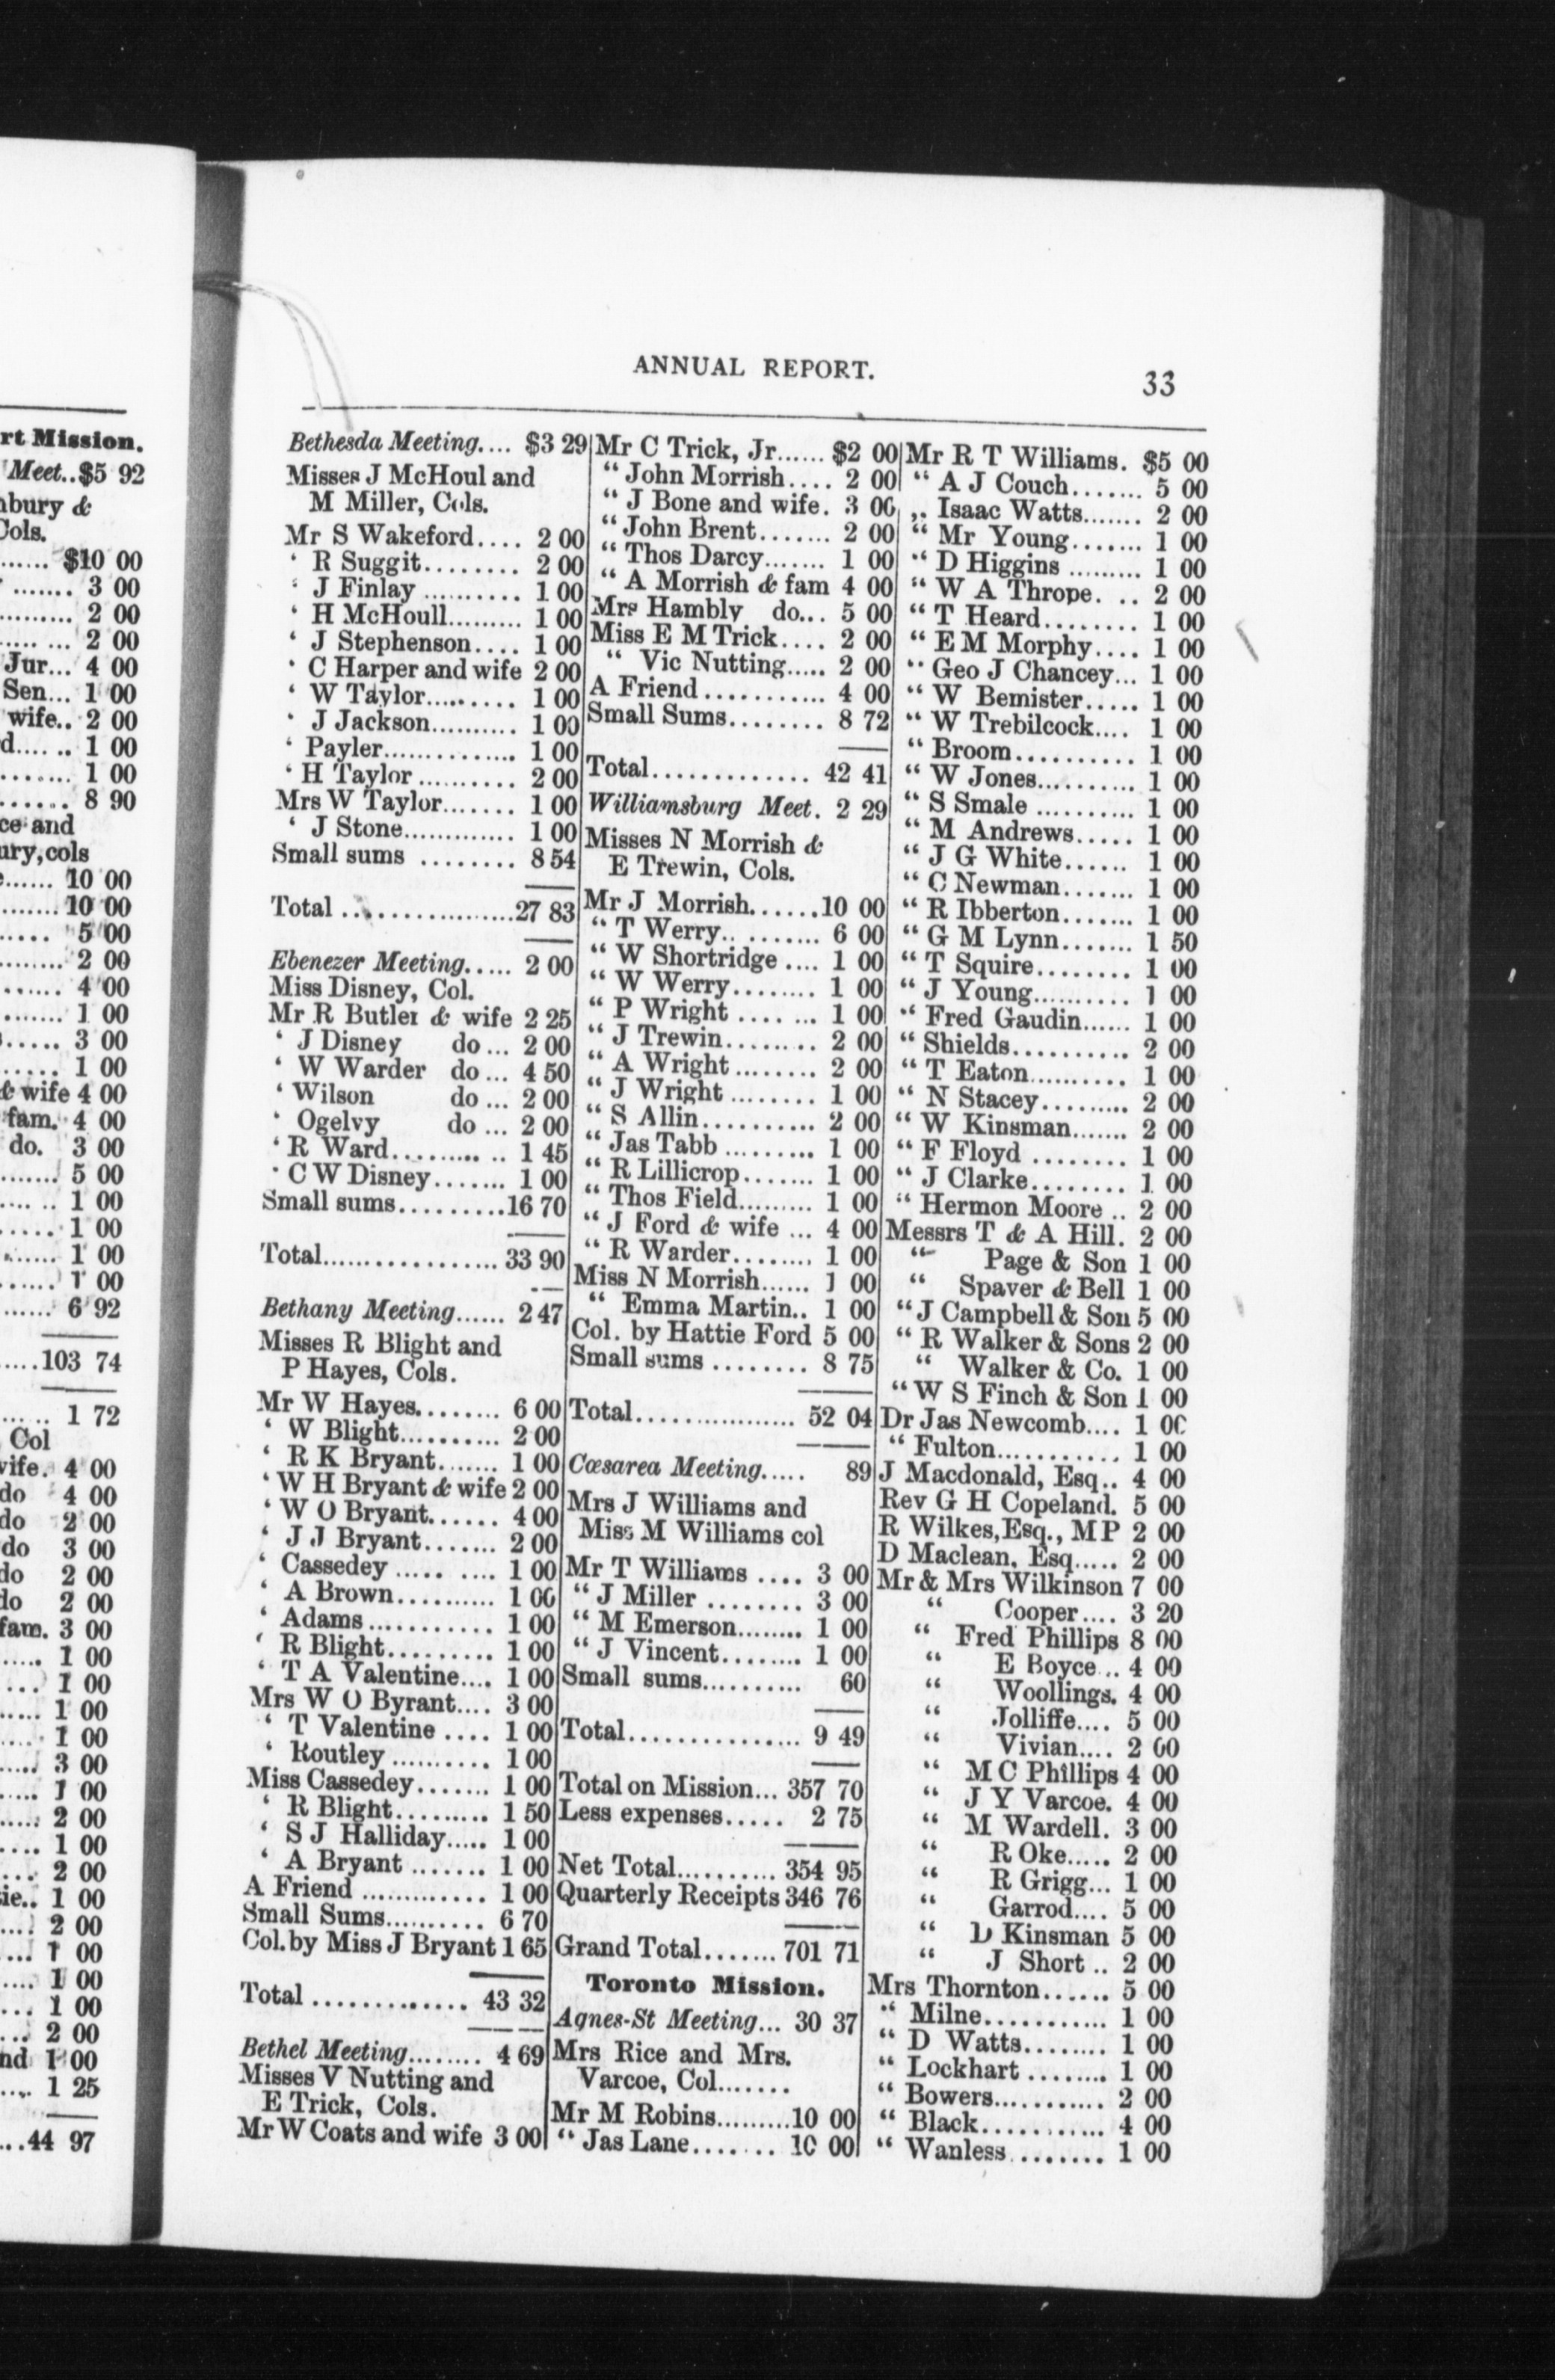 rt Mission.
Meet..$5 92
nbury &
Cols.
...... $10 00
....... 3 00
......... 2 00
..... ... 2 00
Jur... 4 00
Sen... 1 00
wife.. 2 00
d..... .. 1 00
........ 1 00
...... 8 90
ce and
ury, cols
...... 10 00
....... 10 00
..... 5 00
........ 2 00
...... 4 00
....... 1 00
...... 3 00
..... 1 00
& wife 4 00
fam. 4 00
do. 3 00
....... 5 00
.... .. 1 00
..... 1 00
....... 1 00
...... 1 00
...... 6 92
.....103 74
..... .. 1 72
Col
wife. 4 00
do 4 00
do 2 00
do 3 00
do 2 00
do 2 00
fam. 3 00
..... 1 00
... 1 00
..... 1 00
..... 1 00
..... 3 00
..... 1 00
..... 2 00
.... 1 00
... 2 00
ie.. 1 00
.... 2 00
... 1 00
.... 1 00
... 1 00
... 2 00
nd 1 00
.... 1 25
...44 97
ANNUAL REPORT.
33
Bethesda Meeting.... $3 29
Misses J McHoul and
M Miller, Cols.
Mr S Wakeford.... 2 00
‘ R Suggit........ 2 00
‘ J Finlay .......... 1 00
‘ H McHoull......... 1 00
‘ J Stephenson.... 1 00
‘ C Harper and wife 2 00
‘ W Taylor......... 1 00
‘ J Jackson.......... 1 00
‘ Payler.............. 1 00
‘ H Taylor .......... 2 00
Mrs W Taylor....... 1 00
‘ J Stone............. 1 00
Small sums ........ 8 54
Total ..................27 83
Ebenezer Meeting..... 2 00
Miss Disney, Col.
Mr R Butler & wife 2 25
‘ J Disney do... 2 00
‘ W Warder do... 4 50
‘ Wilson do... 2 00
‘ Ogelvy do... 2 00
‘ R Ward........... .. 1 45
‘ C W Disney....... 1 00
Small sums..........16 70
Total.................. 33 90
Bethany Meeting...... 2 47
Misses R Blight and
P Hayes, Cols.
Mr W Hayes........ 6 00
‘ W Blight.......... 2 00
‘ R K Bryant....... 1 00
‘ W H Bryant & wife 2 00
‘ W O Bryant...... 4 00
‘ J J Bryant....... 2 00
‘ Cassedey ..... .... 1 00
‘ A Brown.......... 1 00
‘ Adams........... 1 00
‘ R Blight.......... 1 00
‘ T A Valentine.... 1 00
Mrs W O Byrant.... 3 00
‘ T Valentine .... 1 00
‘ Routley .......... 1 00
Miss Cassedey....... 1 00
‘ R Blight......... 1 50
‘ S J Halliday..... 1 00
‘ A Bryant ....... 1 00
A Friend ............. 1 00
Small Sums.......... 6 70
Col. by Miss J Bryant 1 65
Total ............... 43 32
Bethel Meeting........ 4 69
Misses V Nutting and
E Trick, Cols.
Mr W Coats and wife 3 00
Mr C Trick, Jr...... $2 00
“ John Morrish.... 2 00
“ J Bone and wife. 3 00
“ John Brent....... 2 00
“ Thos Darcy....... 1 00
“ A Morrish & fam 4 00
Mrs Hambly do... 5 00
Miss E M Trick.... 2 00
“ Vic Nutting..... 2 00
A Friend........... 4 00
Small Sums........ 8 72
Total............. 42 41
Williamsburg Meet. 2 29
Misses N Morrish &
E Trewin, Cols.
Mr J Morrish......10 00
“ T Werry.. ........ 6 00
“ W Shortridge .... 1 00
“ W Werry........ 1 00
“ P Wright .... ... 1 00
“ J Trewin......... 2 00
“ A Wright........ 2 00
“ J Wright ........ 1 00
“ S Allin........... 2 00
“ Jas Tabb ......... 1 00
“ R Lillicrop....... 1 00
“ Thos Field......... 1 00
“ J Ford & wife ... 4 00
“ R Warder......... 1 00
Miss N Morrish...... 1 00
“ Emma Martin.. 1 00
Col. by Hattie Ford 5 00
Small sums ........ 8 75
Total................ 52 04
Cœsarea Meeting..... 89
Mrs J Williams and
Miss M Williams col
Mr T Williams .... 3 00
“ J Miller ........ 3 00
“ M Emerson........ 1 00
“ J Vincent........ 1 00
Small sums.......... 60
Total................ 9 49
Total on Mission... 357 70
Less expenses..... 2 75
Net Total.......... 354 95
Quarterly Receipts 346 76
Grand Total....... 701 71
Toronto Mission.
Agnes-St Meeting... 30 37
Mrs Rice and Mrs.
Varcoe, Col.......
Mr M Robins.........10 00
“ Jas Lane........ 10 00
Mr R T Williams. $5 00
“ A J Couch....... 5 00
,. Isaac Watts....... 2 00
“ Mr Young....... 1 00
“ D Higgins ......... 1 00
“ W A Thrope. .. 2 00
“ T Heard........ 1 00
“ E M Morphy.... 1 00
“ Geo J Chancey... 1 00
“ W Bemister..... 1 00
“ W Trebilcock.... 1 00
“ Broom........... 1 00
“ W Jones.......... 1 00
“ S Smale .......... 1 00
“ M Andrews..... 1 00
“ J G White...... 1 00
“ C Newman....... 1 00
“ R Ibberton....... 1 00
“ G M Lynn....... 1 50
“ T Squire........ 1 00
“ J Young.......... 1 00
“ Fred Gaudin...... 1 00
“ Shields.......... 2 00
“ T Eaton.......... 1 00
“ N Stacey......... 2 00
“ W Kinsman....... 2 00
“ F Floyd ........ 1 00
“ J Clarke........ 1 00
“ Hermon Moore .. 2 00
Messrs T & A Hill. 2 00
“ Page & Son 1 00
“ Spaver & Bell 1 00
“ J Campbell & Son 5 00
“ R Walker & Sons 2 00
“ Walker & Co. 1 00
“ W S Finch & Son 1 00
Dr Jas Newcomb.... 1 00
“ Fulton............ 1 00
J Macdonald, Esq.. 4 00
Rev G H Copeland. 5 00
R Wilkes, Esq., M P 2 00
D Maclean, Esq..... 2 00
Mr & Mrs Wilkinson 7 00
“ Cooper.... 3 20
“ Fred Phillips 8 00
“ E Boyce .. 4 00
“ Woollings. 4 00
“ Jolliffe.... 5 00
“ Vivian.... 2 00
“ M C Phillips 4 00
“ J Y Varcoe. 4 00
“ M Wardell. 3 00
“ R Oke..... 2 00
“ R Grigg... 1 00
“ Garrod.... 5 00
“ D Kinsman 5 00
“ J Short .. 2 00
Mrs Thornton...... 5 00
“ Milne........... 1 00
“ D Watts........ 1 00
“ Lockhart ........ 1 00
“ Bowers........... 2 00
“ Black............ 4 00
“ Wanless ........ 1 00